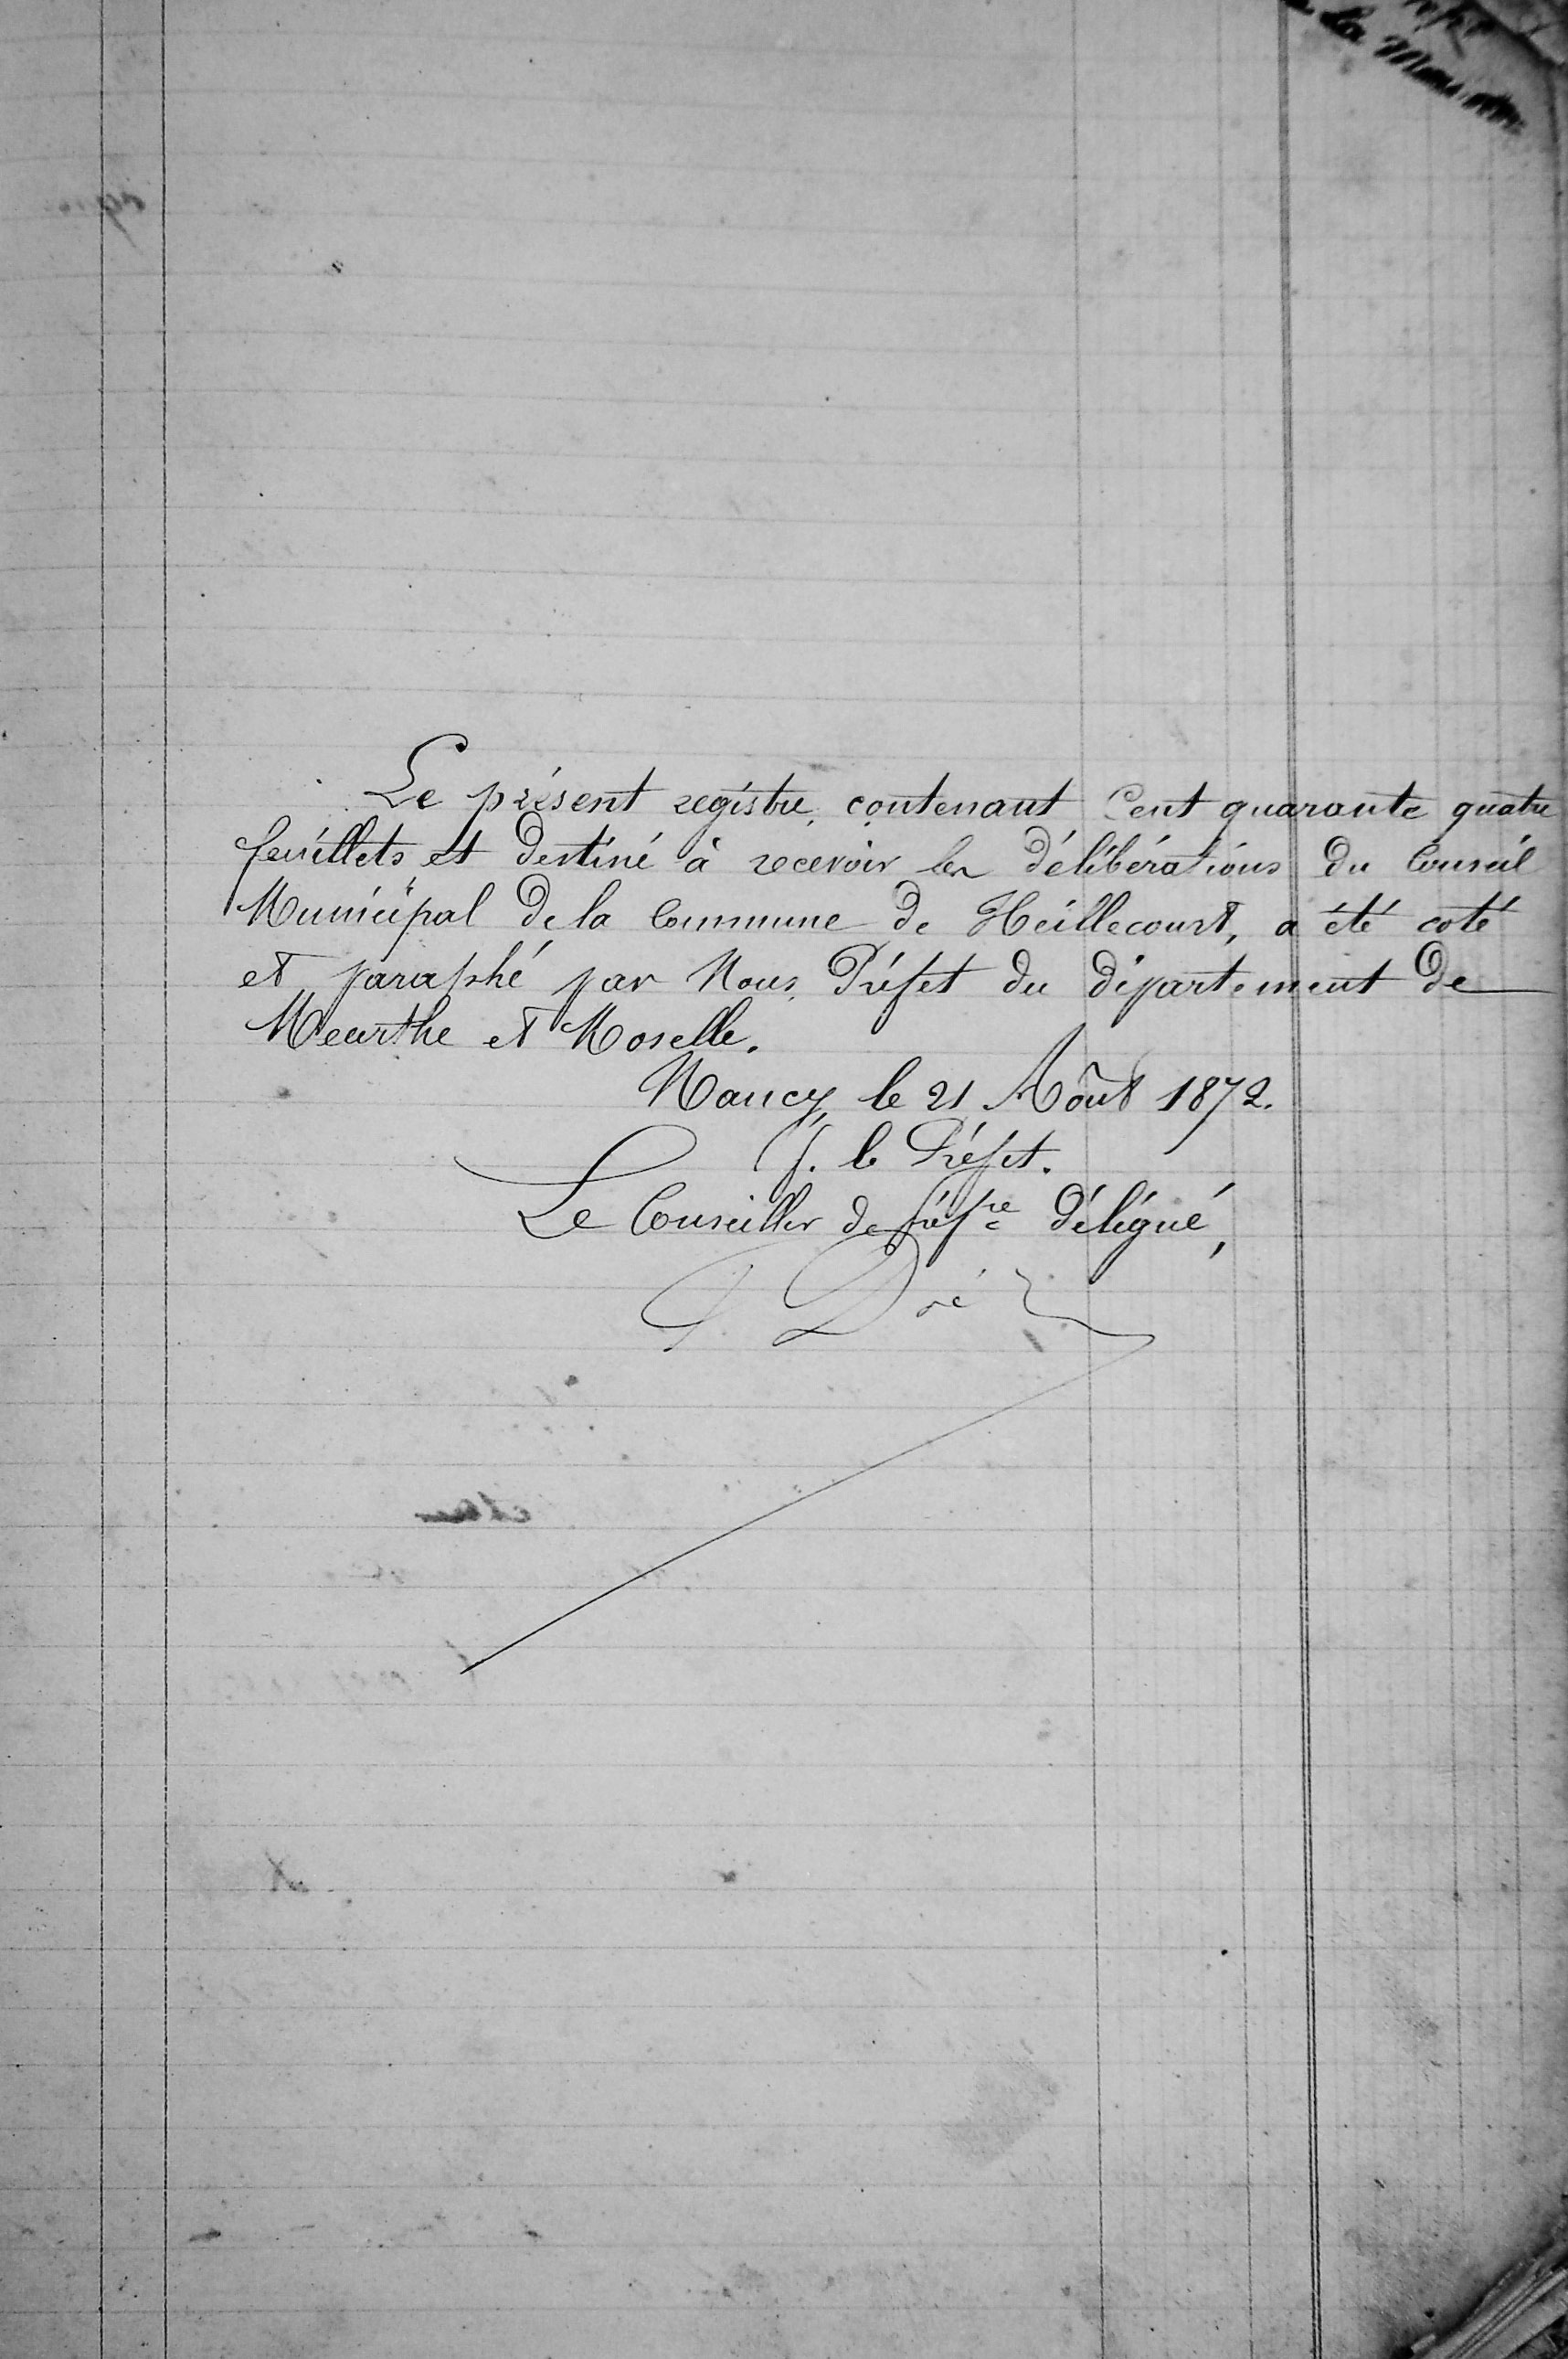 de la Maison
Le présent registre, contenant Cent quarante quatre
feuillets et destiné à recevoir les délibérations du Conseil
Municipal de la Commune de Heillecourt, a été coté
et paraphé par Nous, Préfet du département de
Meurthe et Moselle.
Nancy, le 21 Août 1872.
P. le Préfet.
Le Conseiller de Préfre Délégué,